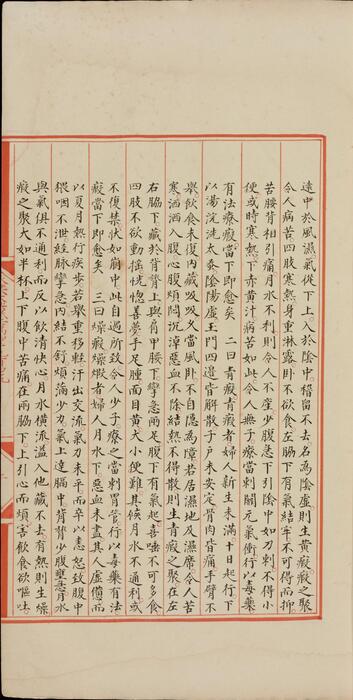 遠中於風濕氣從下上入於陰中稽留不去名為陰虛則生黃瘕瘕之聚
令人病苦四肢寒熱身重淋露卧不欲食左脇下有氣結牢不可得而抑
苦腰背相引痛月水不利則令人不產少腹急下引陰中如刀刺不得小
便或時寒熱下赤黃汁病苦如此令人無子療當刺關元氣衝行以毒藥
有法療瘕當下即愈矣 二曰青瘕青瘕者婦人新生未滿十日起行下
以湯浣洗太蚤陰陽虛玉門四邊皆解散子戶未安定骨肉皆痛手臂不
舉飲食未復内藏吸吸又當風卧不自隱為障若居濕地及濕席令人苦
寒洒洒入腹心腹煩悶沉淖惡血不除結熱不得散則生青瘕瘕之聚在左
右脇下藏於背膂上與肩甲腰下攣急兩足腹下有氣起喜唾不可多食
四肢不欲動摇恍惚善夢手足腫面目黃大小便難其候月水不通利或
不復禁狀如崩中此自過所致令人少子療之當刺胃管行以毒藥有法
瘕當下即愈矣 三曰燥瘕燥瘕者婦人月水下惡血未盡其人虛憊而
以夏月熱行疾步若舉重移輕汗出交流氣力未平而卒以恚怒致腹中
猥咽不泄經脉攣急内結不舒煩滿少力氣上達膈中背膂少腹壅急月水
與氣俱不通利而反以飲清快心月水横流溢入他藏不去有熱則生燥
瘕之聚大如半杯上下腹中苦痛在兩脇下上引心而煩害飲食欲嘔吐